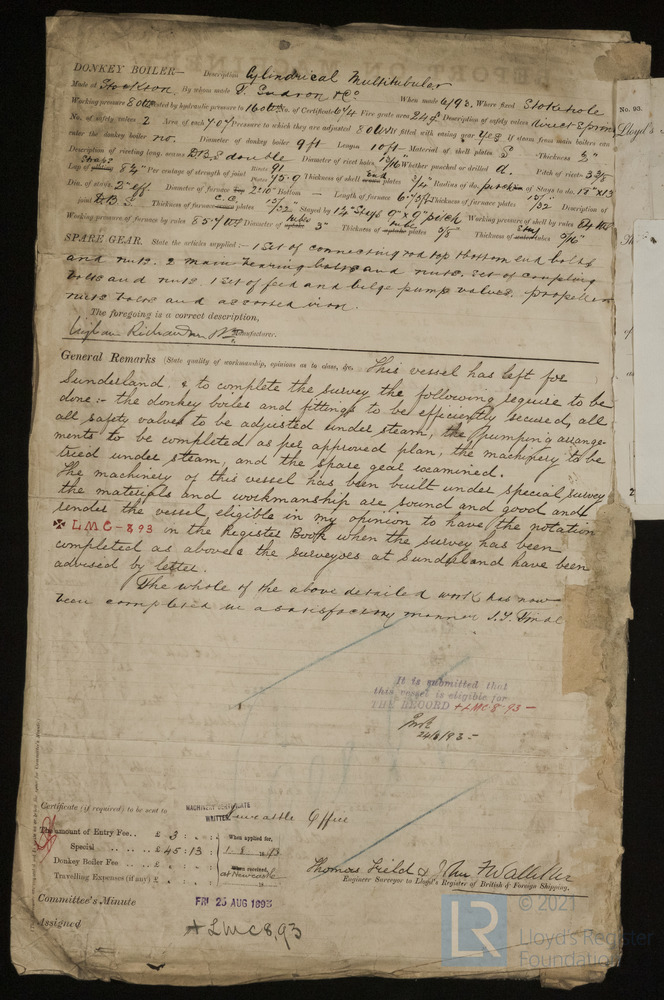 DONKEY BOILER— Description Cylindrical Multitubular
Made at Stockton By whom made T. Sudron & Co When made 6/92. Where fixed Stokehole
Working pressure 80 lbs tested by hydraulic pressure to 160 lbs No. of Certificate 674 Fire grate area 24 ft Description of safety valves direct Spring
No. of safety valves 2 Area of each 7.07 Pressure to which they are adjusted 80 lbs If fitted with easing gear yes If steam from main boilers can
enter the donkey boiler no. Diameter of donkey boiler 9 ft Length 10 ft Material of shell plates S Thickness
Description of riveting long. seams double Diameter of rivet holes 13/16 Whether punched or drilled d. Pitch of rivets
Lap of plating Per centage of strength of joint Rivets Plates 75.9 Thickness of end plates 3/4 Radius of do. Stays to do. 15" x 13
Dia. of stays. 2" eff Diameter of furnace 2' 10" Bottom Length of furnace Thickness of furnace plates 15/32 Description of
joint Thickness of furnace plates 13/32 Stayed by 1 1/4" Stays 9" x 9" pitch Working pressure of shell by rules
Working pressure of furnace by rules 85 Diameter of tubes 3" Thickness of plates 5/8 Thickness of tubes 5/16"
SPARE GEAR. State the articles supplied:— 1 Set of connecting rod top & bottom end bolts
and nuts. 2 main bearing bolts and nuts. set of coupling
bolts and nuts. 1 set of feed and bilge pump valves. propeller
nuts bolts and assorted iron.
The foregoing is a correct description,
Wigham Richardson Manufacturer.
General Remarks (State quality of workmanship, opinions as to class, &c. This vessel has left for
Sunderland, & to complete the survey the following require to be
done:– the donkey boiler and fittings to be efficiently secured, all
all safety valves to be adjusted under steam, the pumping arrange-
ments to be completed as per approved plan, the machinery to be
tried under steam, and the spare gear examined.
The machinery of this vessel has been built under special survey
the materials and workmanship are sound and good and
render the vessel eligible in my opinion to have the notation
✠ LMC–8.93 in the Register Book when the survey has been
completed as above & the surveyors at Sunderland have been
advised by letter.
The whole of the above detailed work has now
been completed in a satisfactory manner
It is submitted that
this vessel is eligible for
THE RECORD + LMC 8.93 –
24/8/93 –
Certificate (if required) to be sent to Newcastle Office
MACHINERY CERTIFICATE
WRITTEN
The amount of Entry Fee.. £ 3 : : When applied for,
Special .. .. £ 45 : 13 : 1.8.1893
Donkey Boiler Fee .. .. £ : : When received,
Travelling Expenses (if any) £ : : at Newcastle
Thomas Field &
Engineer Surveyor to Lloyd's Register of British & Foreign Shipping.
Committee's Minute FRI 25 AUG 1893
Assigned + LMC 8,93
No. 93.
Lloyd's
LR
© 2021
Lloyd's Register
Foundation